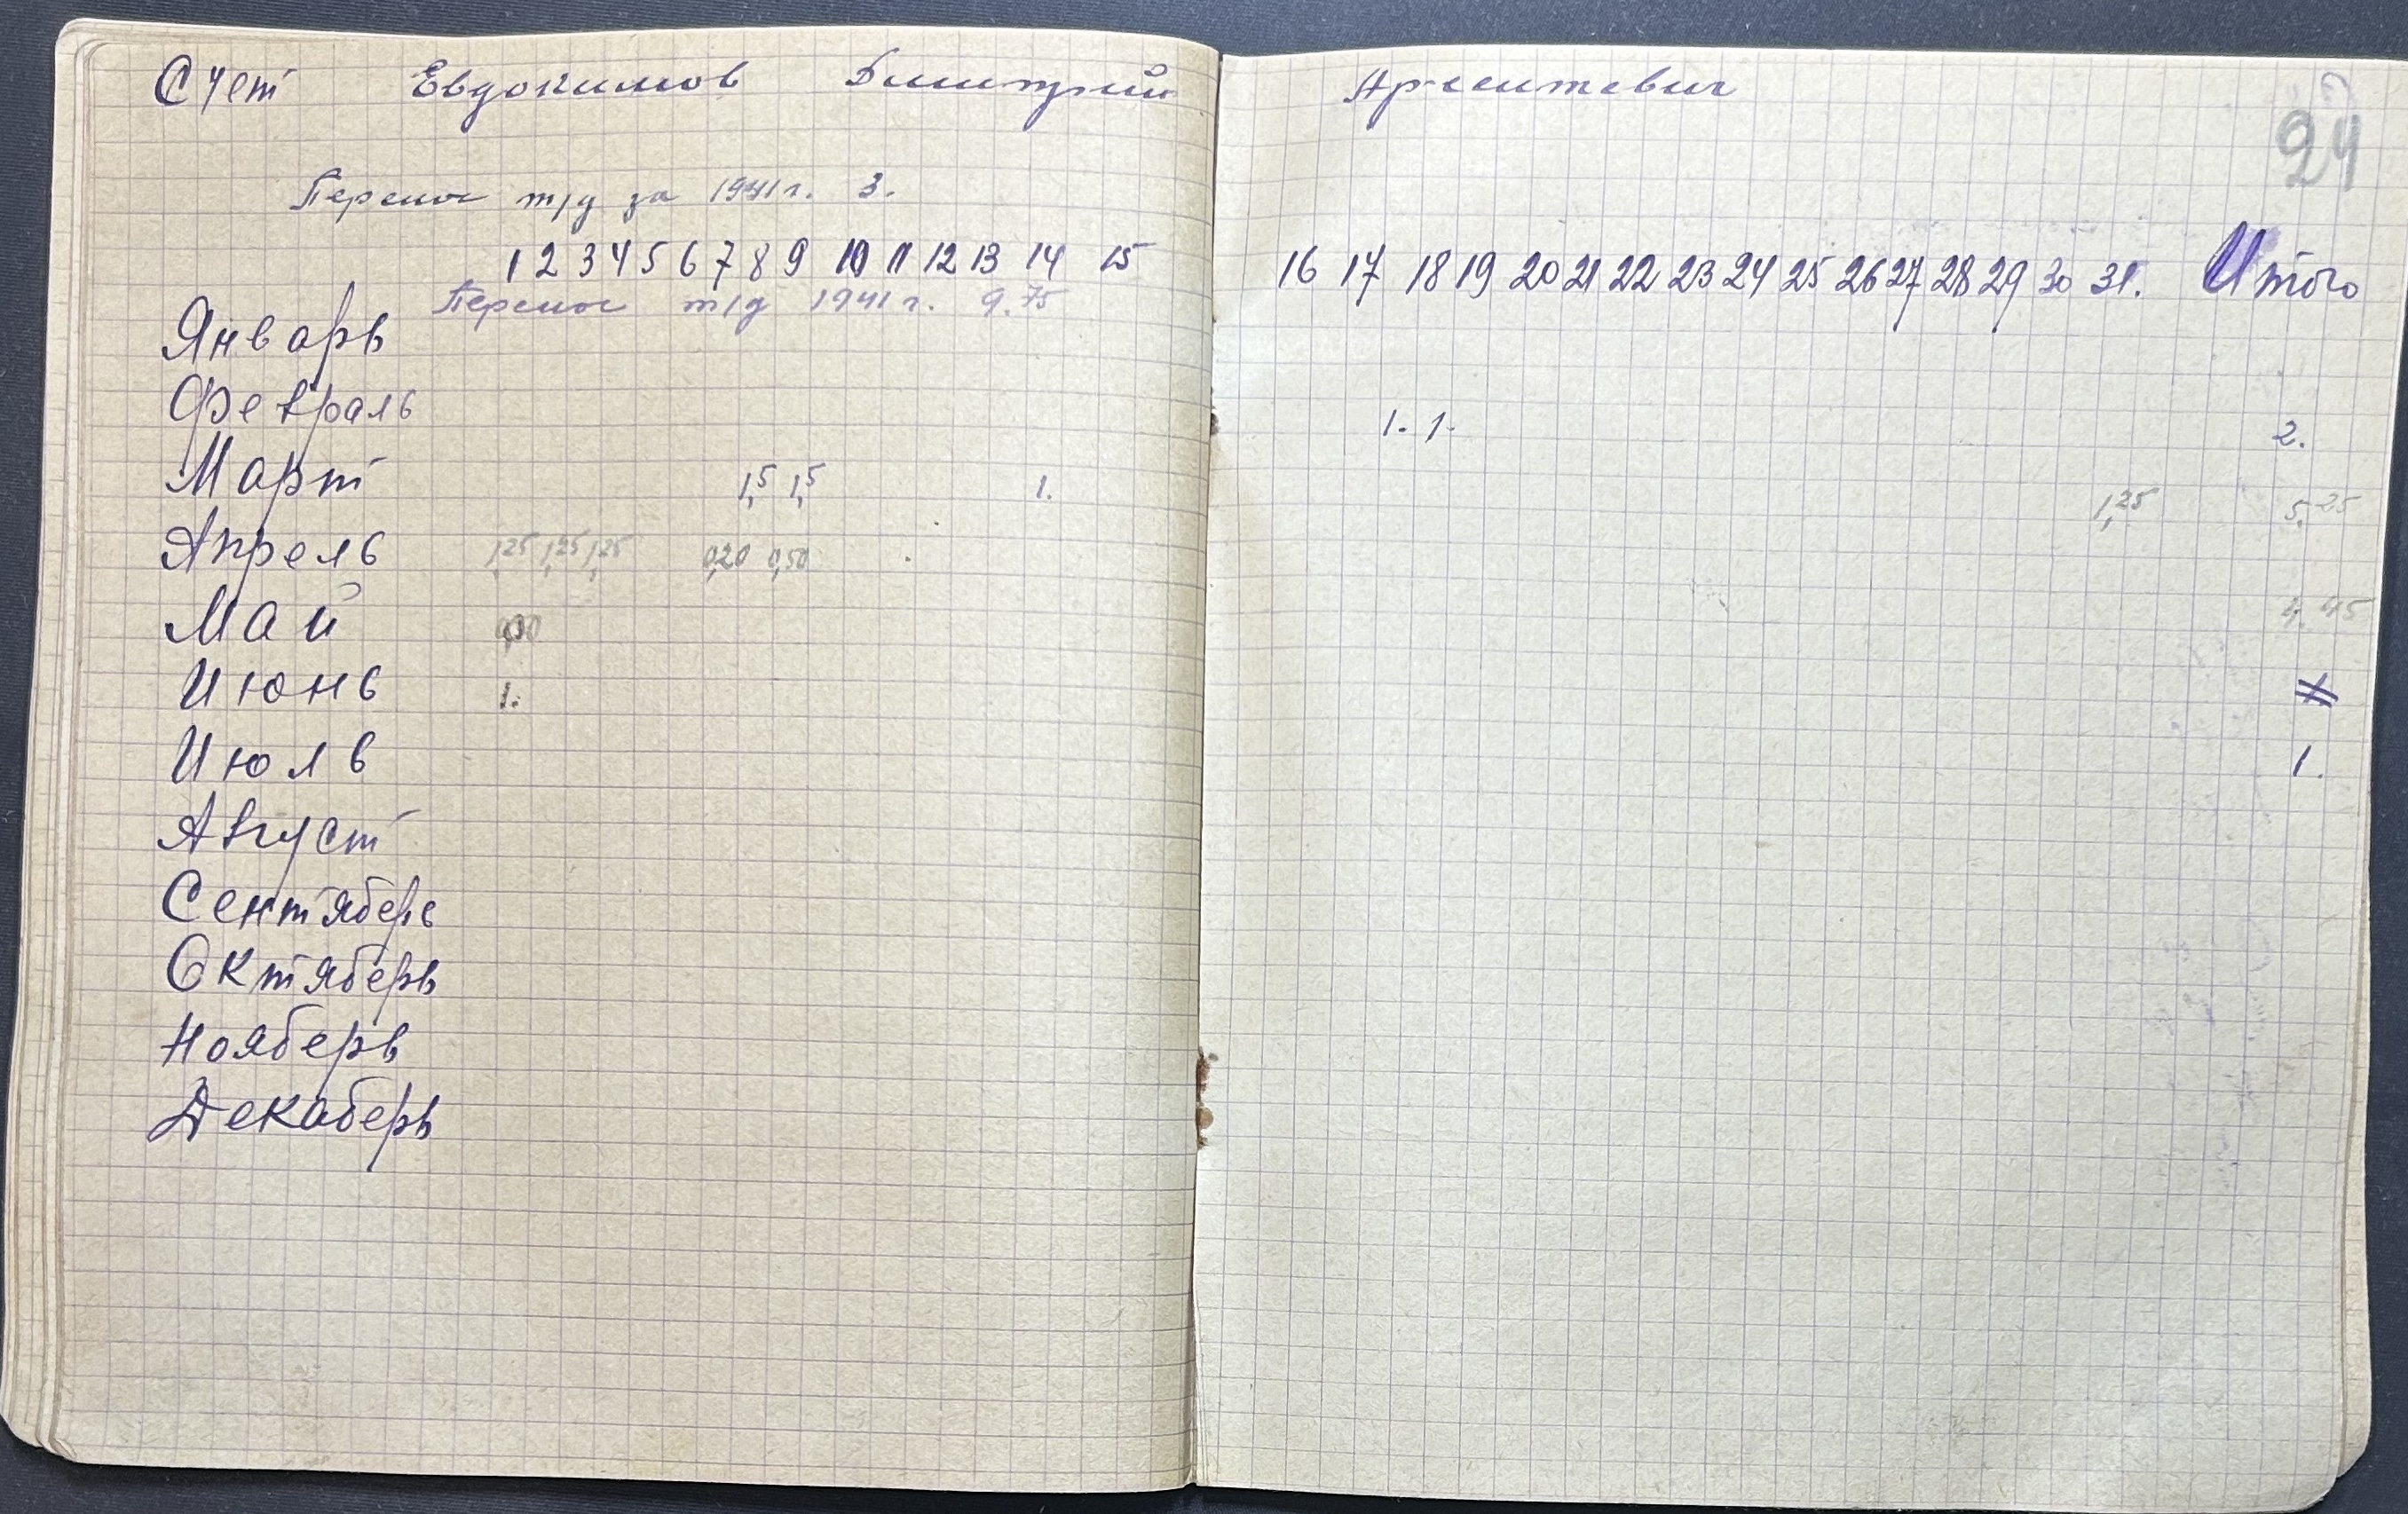 Счет Евдокимов Дмитрий Арсентьевич
24
Перенос т/д за 1941 г. 3.
1 2 3 4 5 6 7 8 9 10 11 12 13 14 15 16 17 18 19 20 21 22 23 24 25 26 27 28 29 30 31. Итого
Перенос т/д 1941 г. 9.75
Январь
Февраль 1. 1. 2.
Март 1,5 1,5 1. 1,25 5.25
Апрель 1,25 1,25 1,25 0,20 0,50
Май 4.45
Июнь 1.
Июль 1.
Август
Сентяберь
Октяберь
Нояберь
Декаберь